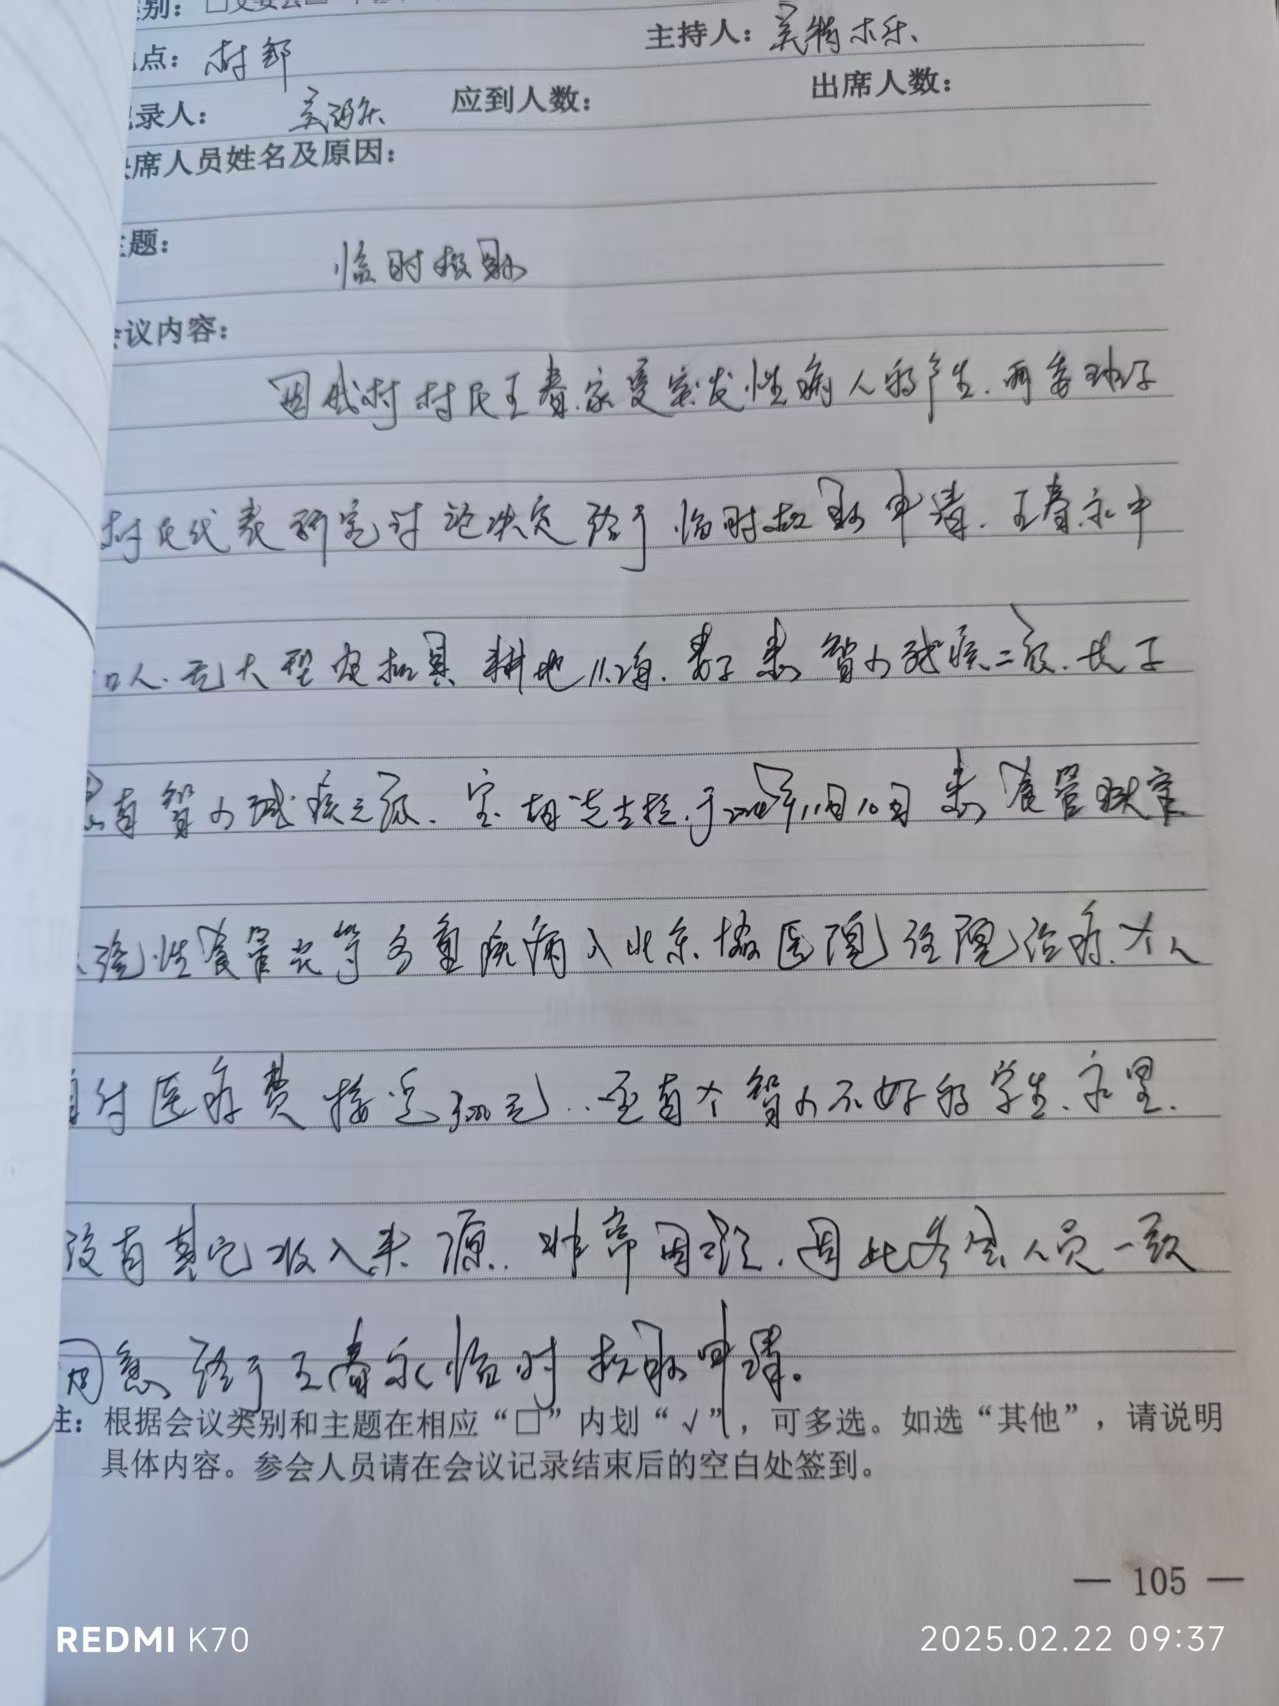 类别：□支委会□
地点：村部 主持人：吴特木乐
记录人： 应到人数： 出席人数：
缺席人员姓名及原因：
主题： 临时救助
会议内容：
因我村村民王春家里突发性病人的产生，两委班子
村民代表研究讨论决定给予临时救助申请，王春永中
口人，无大型农机具 耕地11.2亩，妻子患智力残疾二级，长子
患有智力残疾 级，于2024年11月10日患食管
性食管炎等多重疾病入北京 医院住院治疗，个人
自付医疗费接近3000元，还有个智力不好的学生，家里，
没有其它收入来源，非常困难，因此参会人员一致
同意给予王春永临时救助申请。
注：根据会议类别和主题在相应“□”内划“√”，可多选。如选“其他”，请说明
具体内容。参会人员请在会议记录结束后的空白处签到。
— 105 —
REDMI K70 2025.02.22 09:37